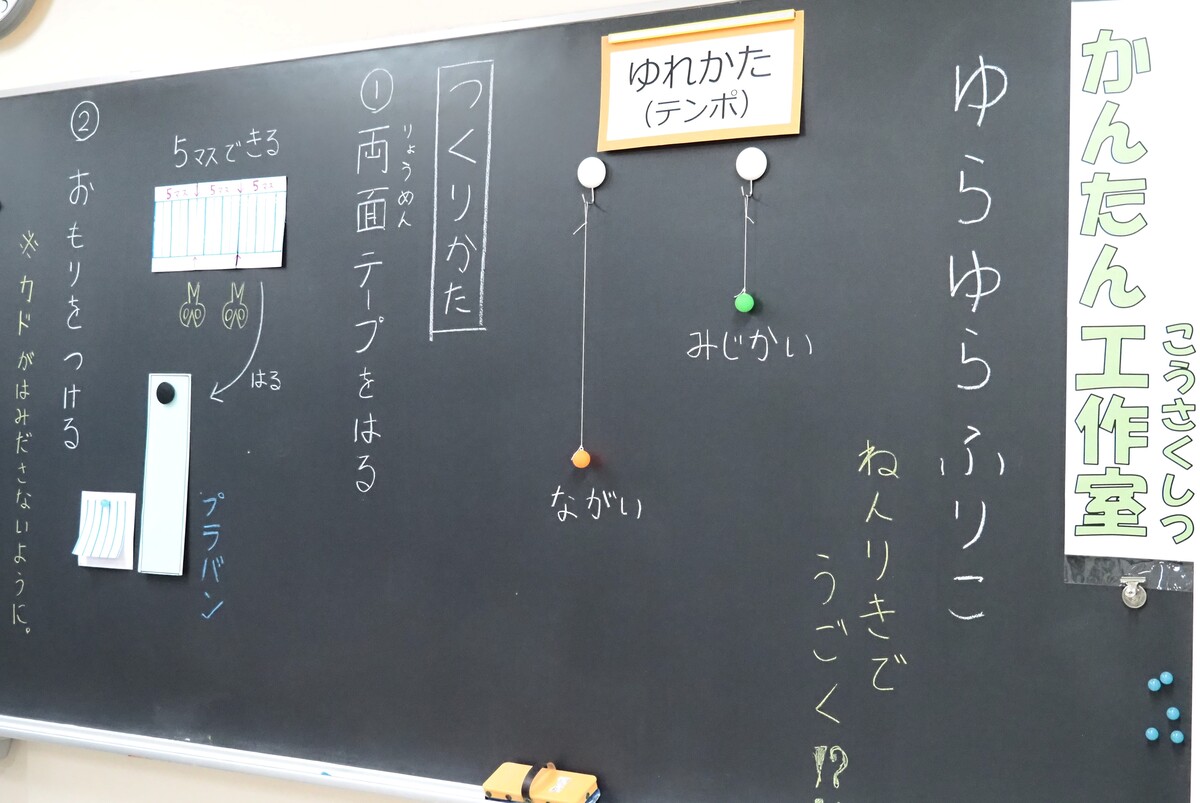 かんたん工作室
こうさくしつ
ゆらゆらふりこ
ねんりきで
うごく⁉
ゆれかた
(テンポ)
みじかい
ながい
つくりかた
①両面テープをはる
りょうめん
5マスできる
5マス 5マス 5マス
はる
プラバン
②おもりをつける
※カドがはみださないように。